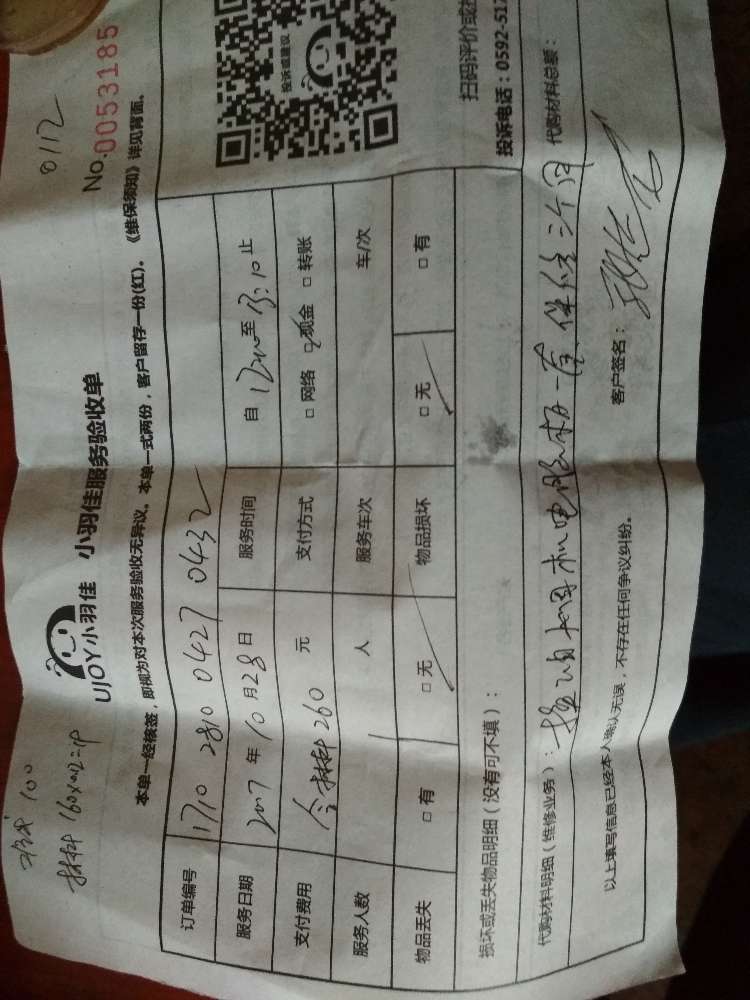 No.0053185
0112
UJOY小羽佳 小羽佳服务验收单
材料 100
本单一经核签，即视为对本次服务验收无异议。本单一式两份，客户留存一份(红)。《维保须知》详见背面。
订单编号 1710 2810 0427 0432
服务日期 2017 年 10 月 28 日 服务时间 自 至 13:10 止
支付费用 含材料 260 元 支付方式 □ 网络 □ 现金 □ 转账
服务人数 人 服务车次 车/次
物品丢失 □ 有 □ 无 物品损坏 □ 无 □ 有
损坏或丢失物品明细（没有可不填）：
代购材料明细（维修业务）： 电脑板一 保修 代购材料总额：
以上填写信息已经本人确认无误，不存在任何争议纠纷。 客户签名：
投诉或建议
扫码评价或
投诉电话：0592-517